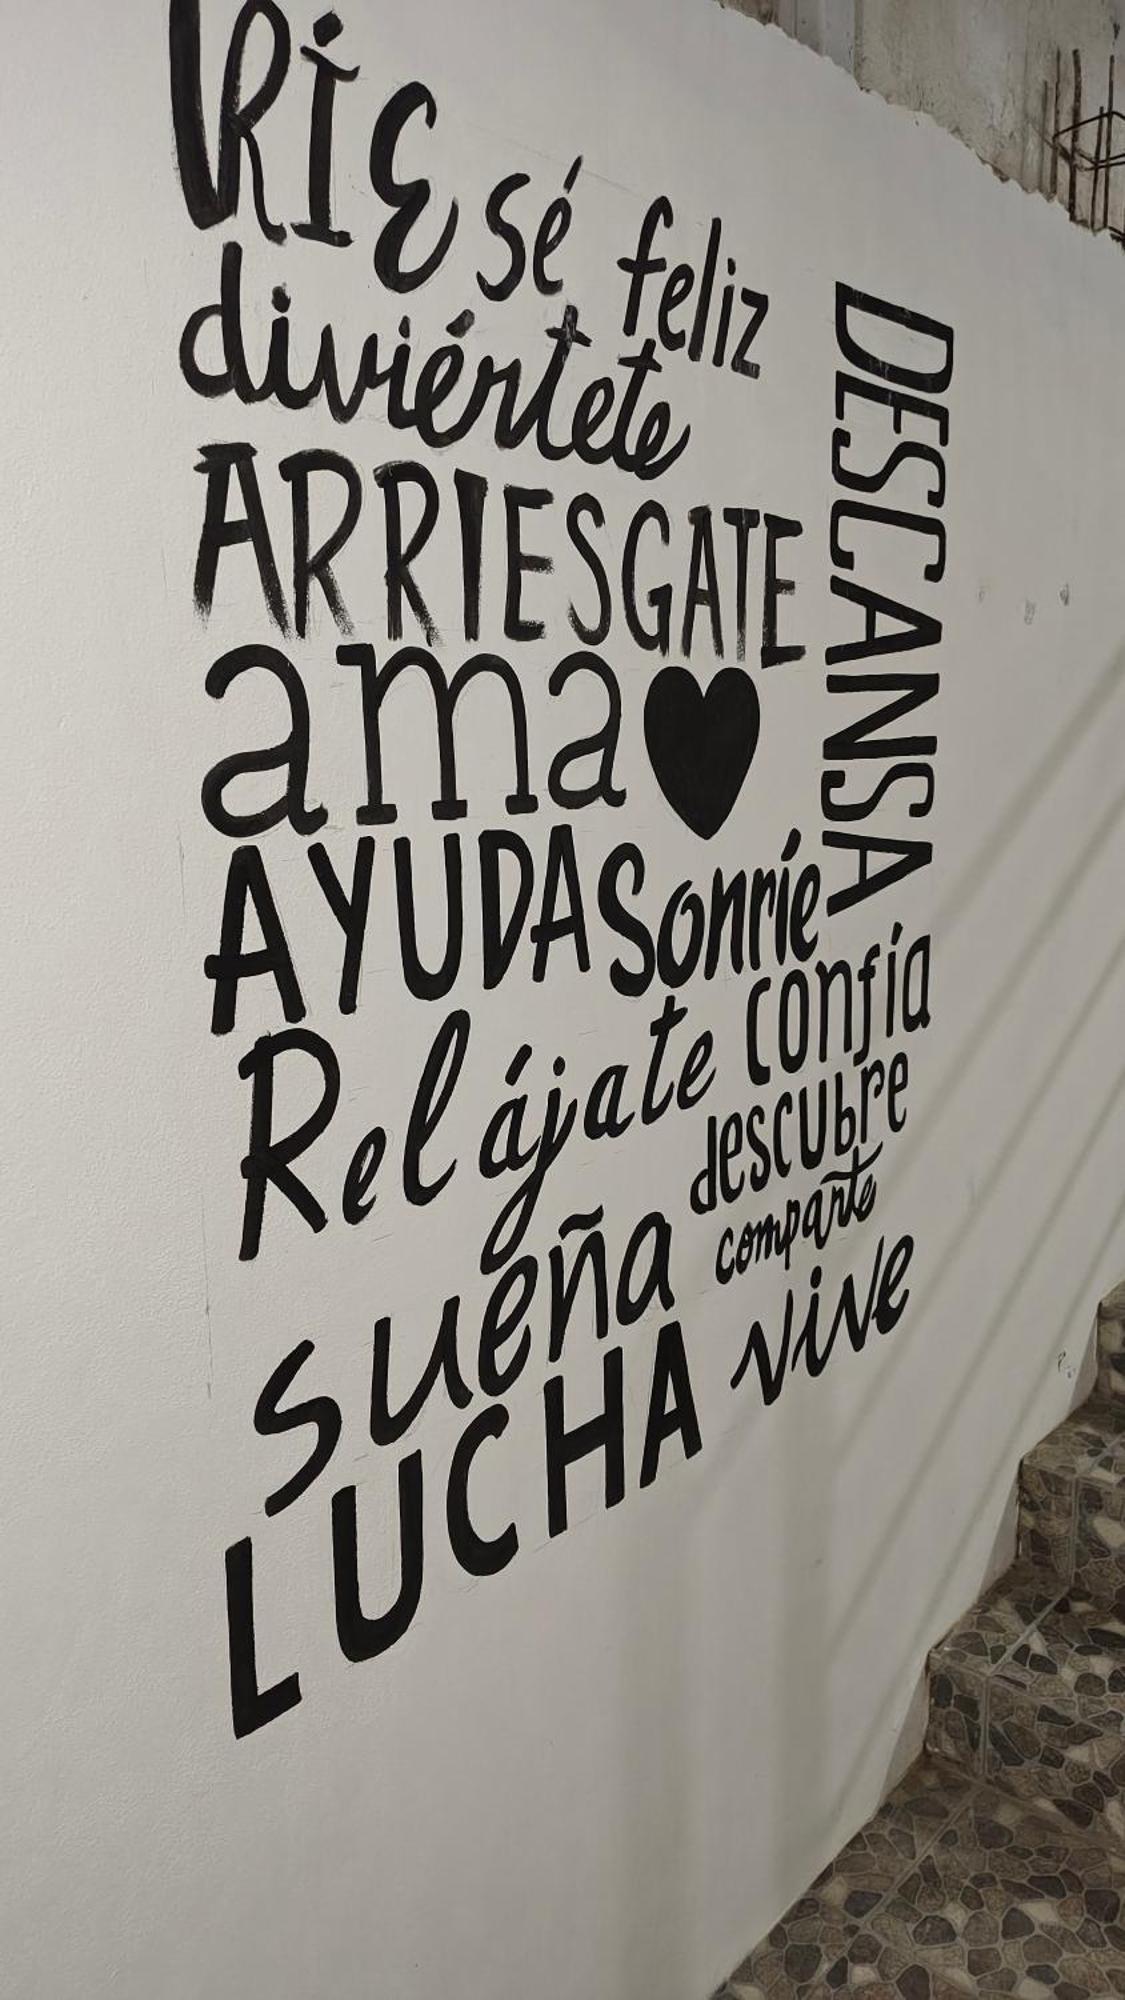 RÍE sé feliz
diviértete
DESCANSA
ARRIESGATE
ama
AYUDA Sonríe
Relájate confía
descubre
sueña comparte
LUCHA vive